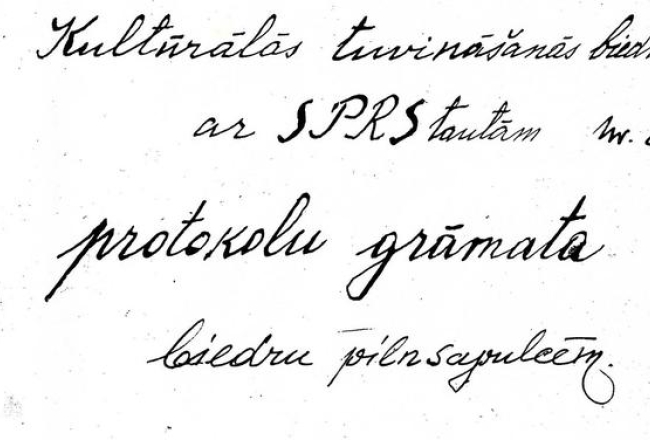 Kultūrālās tuvināšanās bied
ar SPRS tautām
protokolu grāmata
biedru pilnsapulcēm.